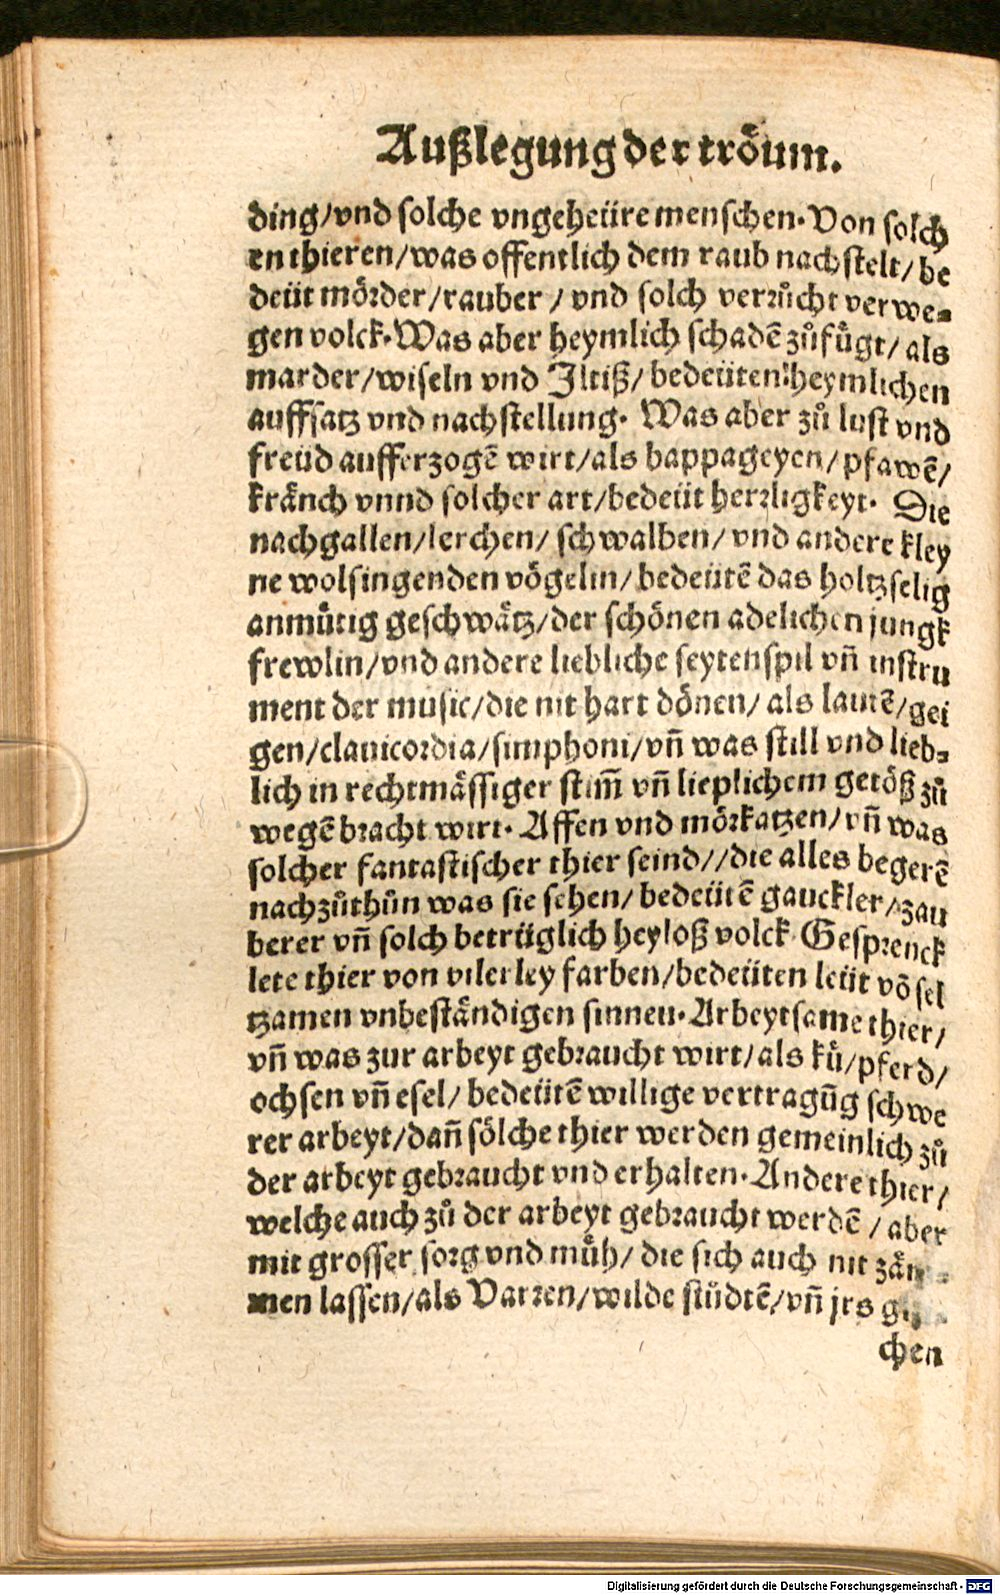 Außlegung der tröum.
ding/vnd solche vngeheüre menschen. Von solch
en thieren/was offentlich dem raub nachstelt/be
deüt mörder/rauber / vnd solch verrůcht verwe-
gen volck. Was aber heymlich schadē zůfügt/als
marder/wiseln vnd Iltiß/ bedeüten heymlichen
auffsatz vnd nachstellung. Was aber zů lust vnd
freüd aufferzogē wirt/als bappageyen/pfawē/
kränch vnnd solcher art/bedeüt herzligkeyt. Die
nachgallen/lerchen/ schwalben/ vnd andere kley
ne wolsingenden vögelin/ bedeütē das holtzselig
anmütig geschwätz/der schönen adelichen jungk
frewlin/vnd andere liebliche seytenspil vñ instru
ment der music/die nit hart dönen/ als lautē/gei
gen/clauicordia/simphoni/vñ was still vnd lieb-
lich in rechtmässiger stim̄ vñ lieplichem getöß zů
wegē bracht wirt. Affen vnd mörkatzen/vñ was
solcher fantastischer thier seind//die alles begerē
nachzůthůn was sie sehen/ bedeütē gauckler/zau
berer vñ solch betrüglich heyloß volck. Gesprenck
lete thier von vilerley farben/bedeüten leüt vō sel
tzamen vnbeständigen sinnen. Arbeytsame thier/
vñ was zur arbeyt gebraucht wirt/als kü/pferd/
ochsen vñ esel/ bedeütē willige vertragūg schwe
rer arbeyt/dañ sölche thier werden gemeinlich zů
der arbeyt gebraucht vnd erhalten. Andere thier/
welche auch zů der arbeyt gebraucht werdē / aber
mit grosser sorg vnd müh/ die sich auch nit zäm-
men lassen/als Varren/wilde stůdtē/vñ jrs
chen
Digitalisierung gefördert durch die Deutsche Forschungsgemeinschaft - DFG